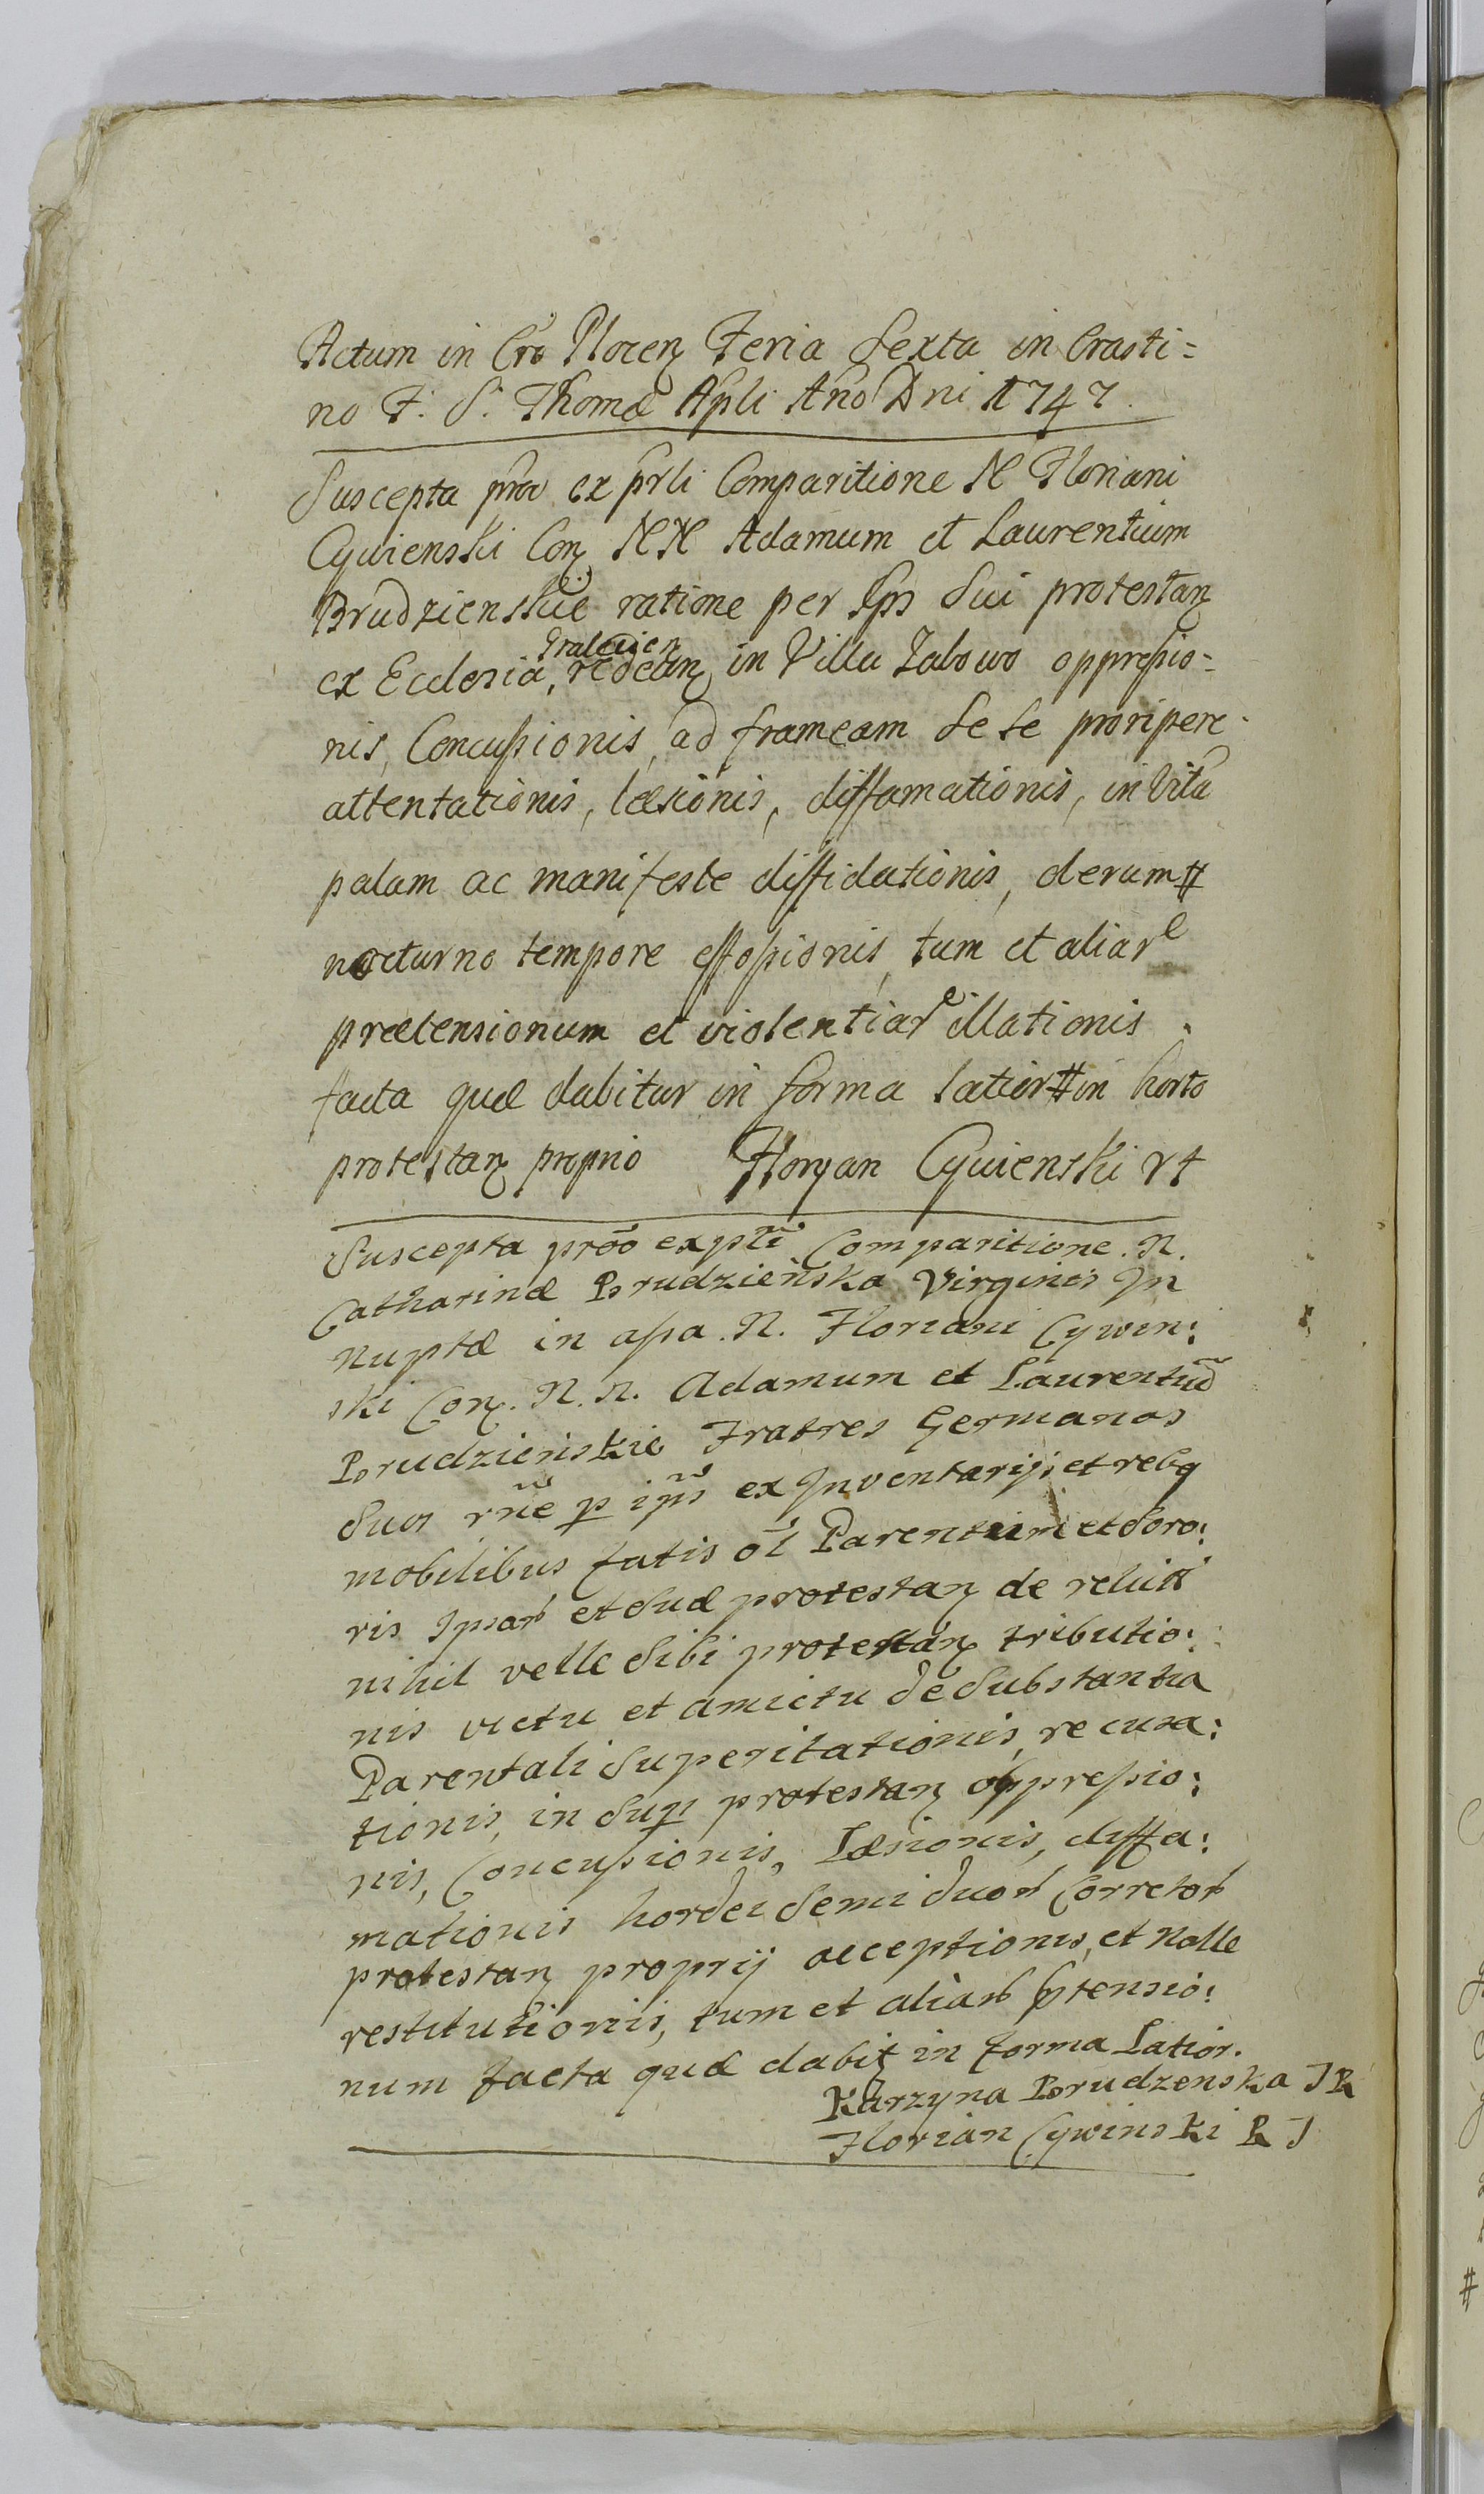 Actum in Cro Plocen Feria Sexta in Crasti=
no F. S. Thomæ Apli Ano Dni 1747.
Suscepta pro ex prli Comparitione N Floriani
Cywienski Con NN Adamum et Laurentium
Brudzienskie ratione per Ips Sui protestan
ex Ecclesia, redean in Villa Zabowo oppressio=
nis, Concussionis, ad frameam se se proripere
attentationis, læsionis, diffamationis, in Vita
palam ac manifeste diffidationis, derum #
nocturno tempore effossionis, tum et aliar
prætensionum et violentiar illationis
facta quæ dabitur in forma latior # in horto
protestan proprio Floryan Cywienski rt
Suscepta proo ex ptĩ Comparitione. N.
Catharinæ Brudzieńska Virginis In
nuptæ in assa. N. Floriani Cywin:
ski Con. N. N. Adamum et Laurentiũ
Brudzieńskie Fratres Germanos
Suos rñe p ipũs ex Inventarijs et rebq
mobilibus fatis ol Parentum et Soro:
ris Ipsar et Suæ protestan de relict
nihil velle Sibi protestan tributio:
nis victu et amictu de Substantia
Parentali Superitationis, recusa:
tionis, in Sup protestan oppressio:
nis, Concussionis, Læsionis, diffa:
mationis hordei Semi duor Corretor
protestan proprij acceptionis, et Nolle
restitutionis, tum et aliar ptensio:
num facta quæ dabit in forma Latior.
Karzyna Brudzenska JR
Florian Cywinski R J